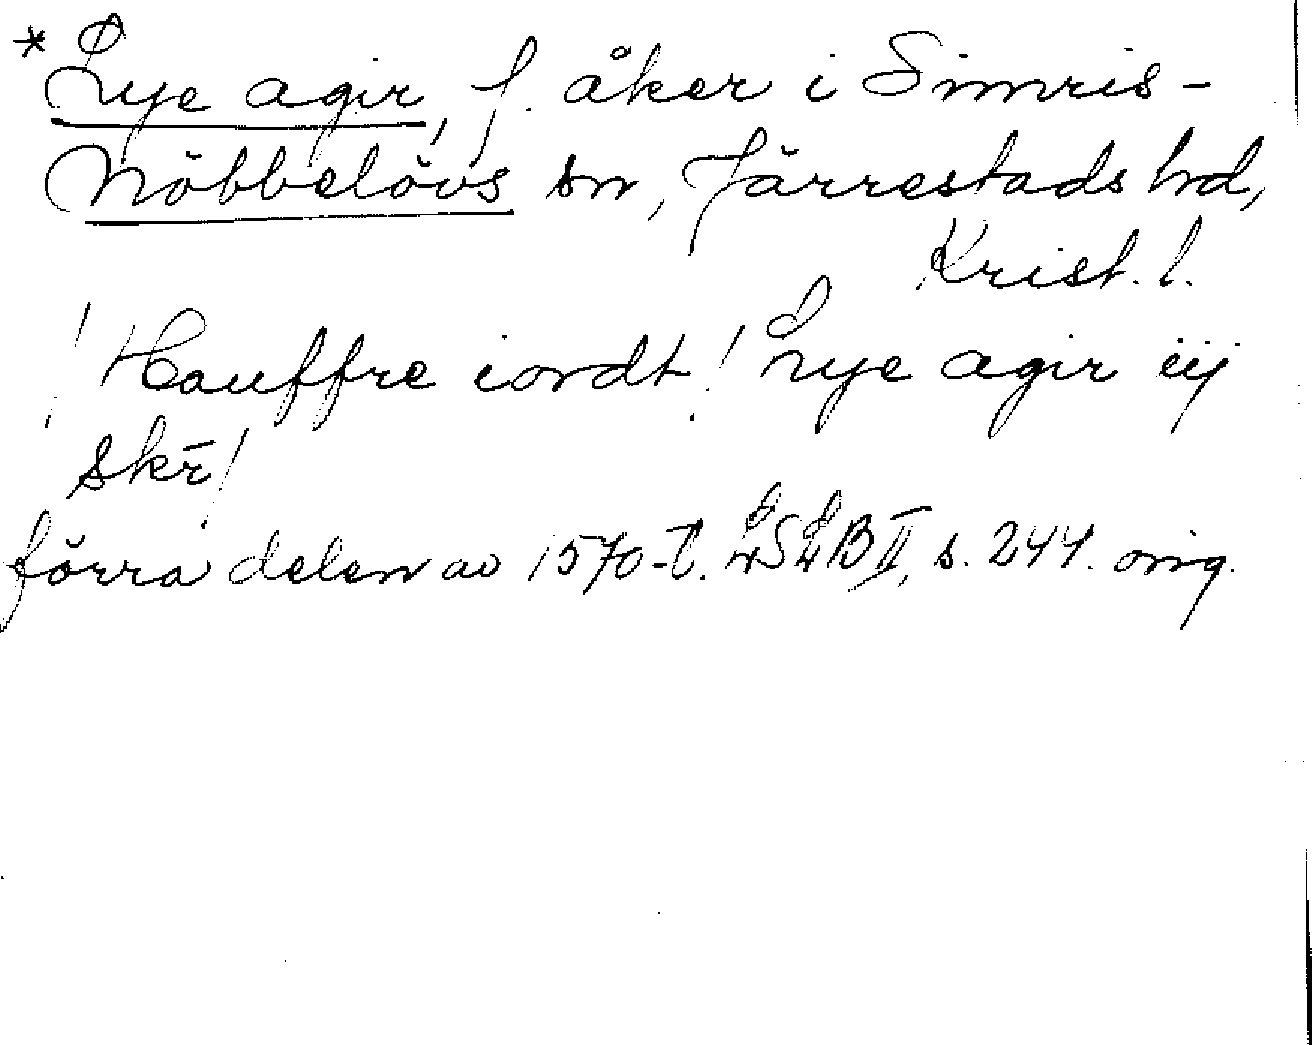 * Lye agir, f. åker i Simris-
Nöbbelövs sn, Järrestads hd,
Krist. l.
! Hauffre iordt! Lye agir iij
skr̄!
förra delen av 1570-t. LSLB II, s. 244. orig.